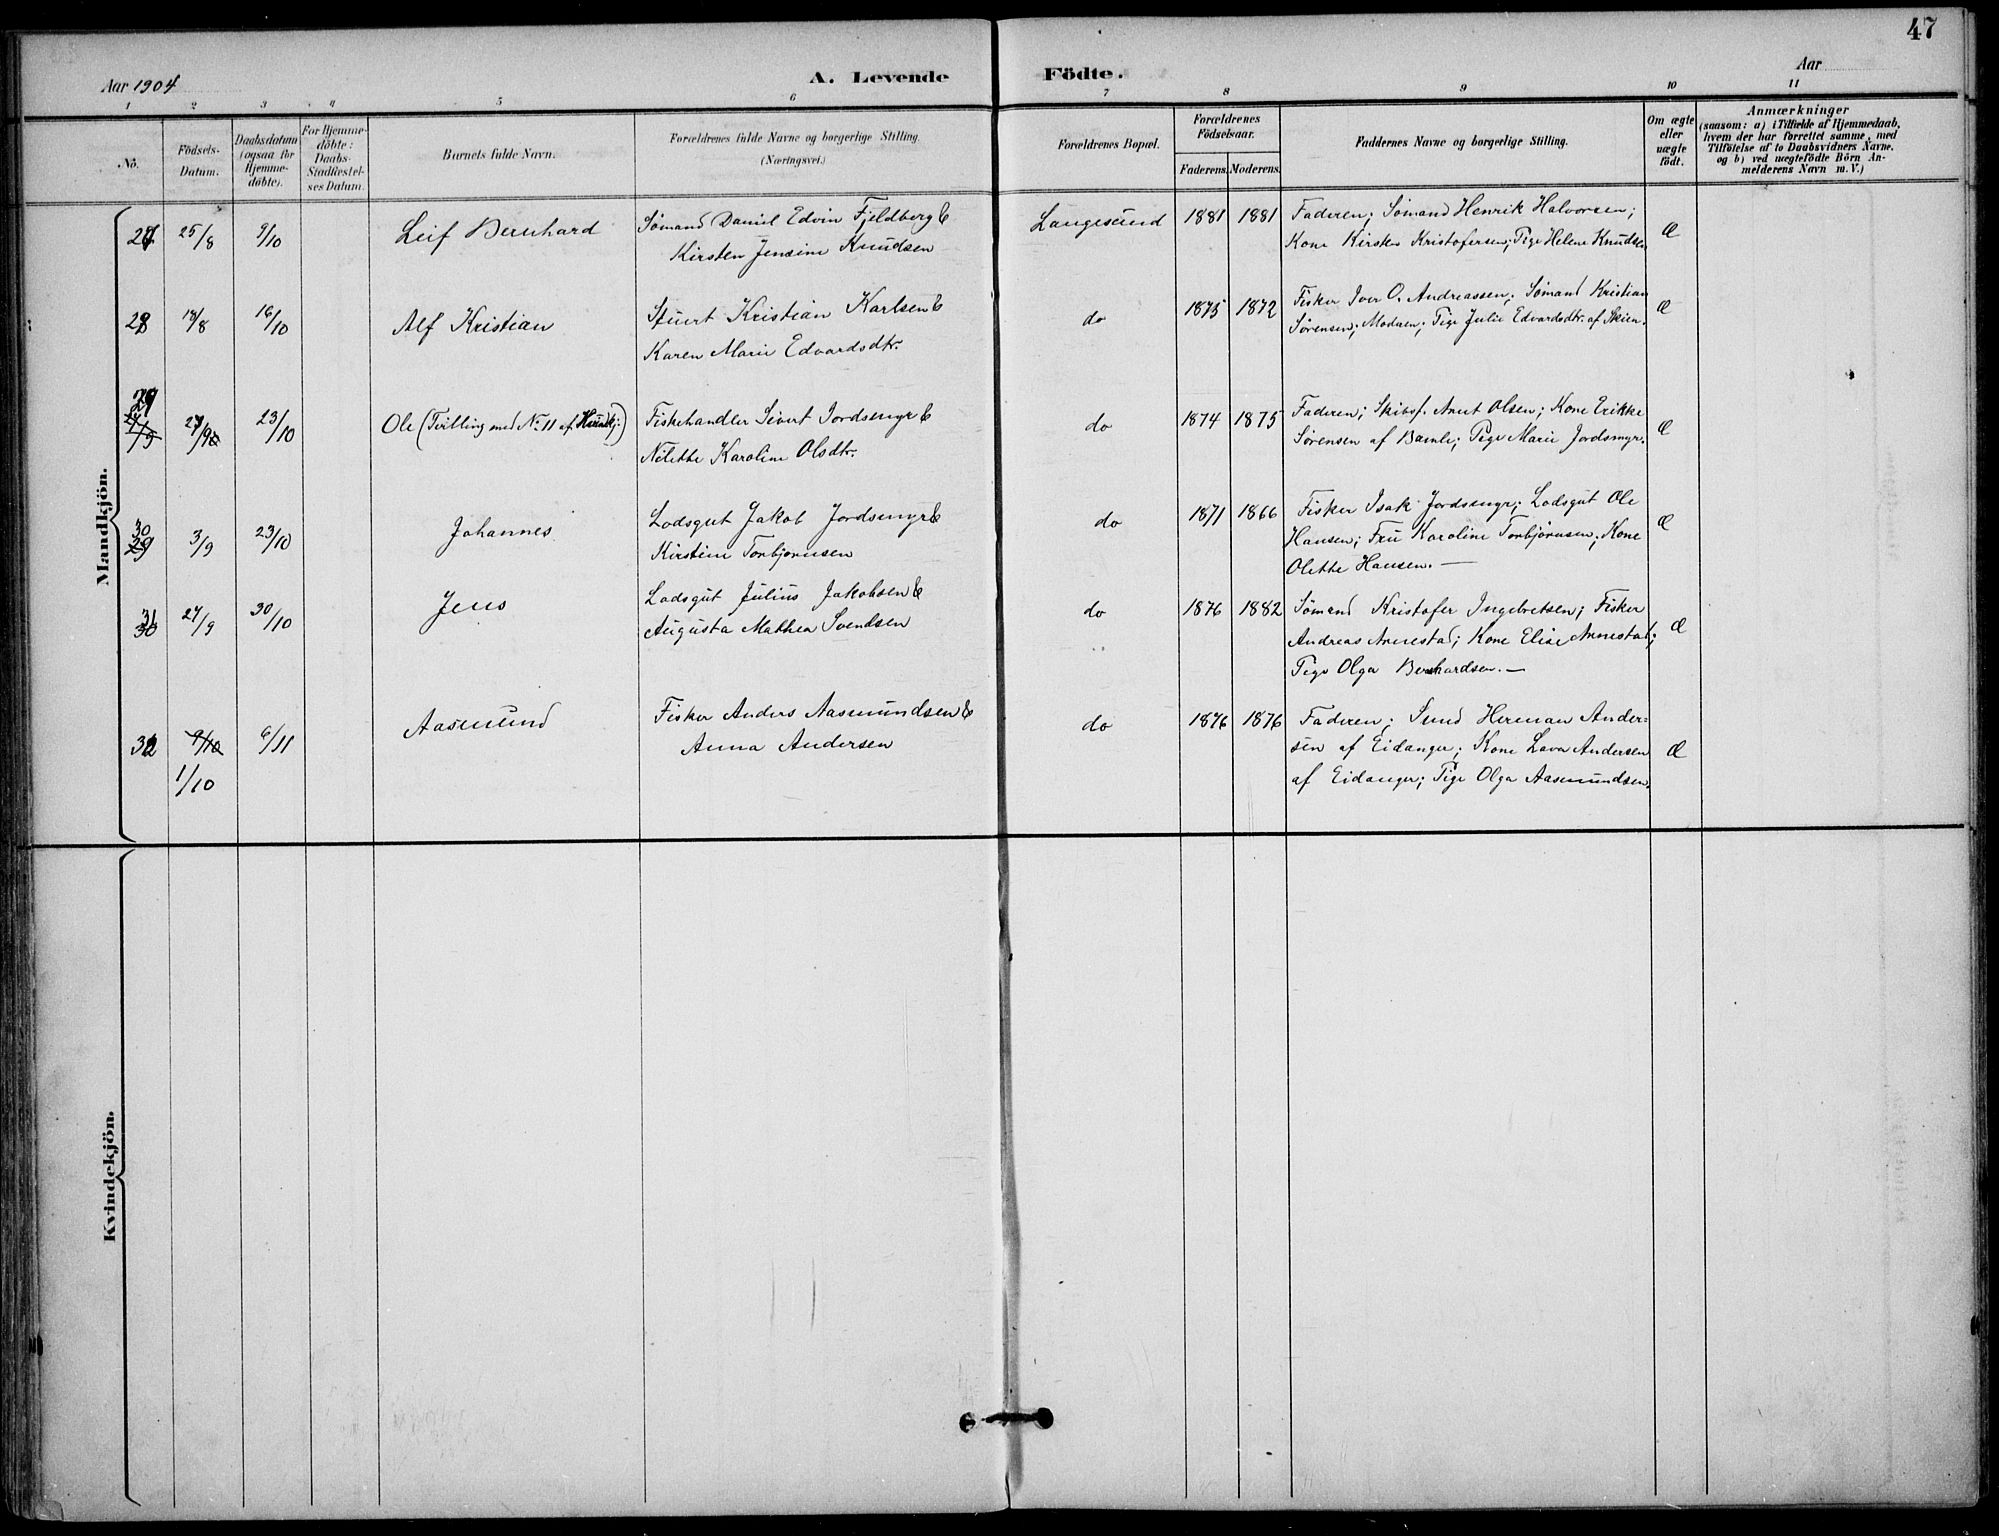 47
Aar 1904
A. Levende Födte.
Aar
1 2 3 4 5 6 7 8 9 10 11
No.
Födsels-Datum.
Daabsdatum (ogsaa for Hjemme-döbte).
For Hjemme-döbte: Daabs-Stadfæstel-ses Datum.
Barnets fulde Navn.
Forældrenes fulde Navne og borgerlige Stilling.
(Næringsvei.)
Forældrenes Bopæl.
Forældrenes Födselsaar.
Faderens. Moderens.
Faddernes Navne og borgerlige Stilling.
Om ægte eller uægte födt.
Anmærkninger
(saasom: a) i Tilfælde af Hjemmedaab,
hvem der har forrettet samme, med
Tilföielse af to Daabsvidners Navne,
og b) ved uægtefödte Börn An-
melderens Navn m. V.)
Mandkjön.
27 25/8 9/10 Leif Bernhard
Sømand Daniel Edvin Fjeldberg &
Kirsten Jensine Knudsen
Langesund 1881 1881
Faderen; Sømand Henrik Halvorsen;
Kone Kirsten Kristofersen; Pige Helene Knudsen
Æ
28 18/8 16/10 Alf Kristian
Stuert Kristian Karlsen &
Karen Marie Edvardsdtr.
do 1875 1872
Fisker Iver O. Andreassen; Sømand Kristian
Sørensen; Moderen; Pige Julie Edvardsdtr. af Skien.
Æ
29 27/9 23/10 Ole (Tvilling med No. 11 af Kvindkj:)
Fiskehandler Sivert Jordsmyr &
Nilette Karoline Olsdtr.
do 1874 1875
Faderen; Skibsf. Anut Olsen; Kone Erikke
Sørensen af Bamle; Pige Marie Jordsmyr.
Æ
30 3/9 23/10 Johannes
Lodsgut Jakob Jordsmyr &
Kirstine Torbjørnsen
do 1871 1866
Fisker Isak Jordsmyr; Lodsgut Ole
Hansen; Fru Karoline Torbjørnsen; Kone
Olette Hansen. —
Æ
31 27/9 30/10 Jens
Lodsgut Julius Jakobsen &
Augusta Mathea Svendsen
do 1876 1882
Sømand Kristofer Ingebretsen; Fisker
Andreas Annestad; Kone Elise Annestad;
Pige Olga Bernhardsen. —
Æ
32 9/10 6/11 Aasmund
1/10
Fisker Anders Aasmundsen &
Anna Andersen
do 1876 1876
Faderen; Smed Herman Ander-
sen af Eidanger; Kone Lava Andersen
af Eidanger; Pige Olga Aasmundsen.
Æ
Kvindekjön.